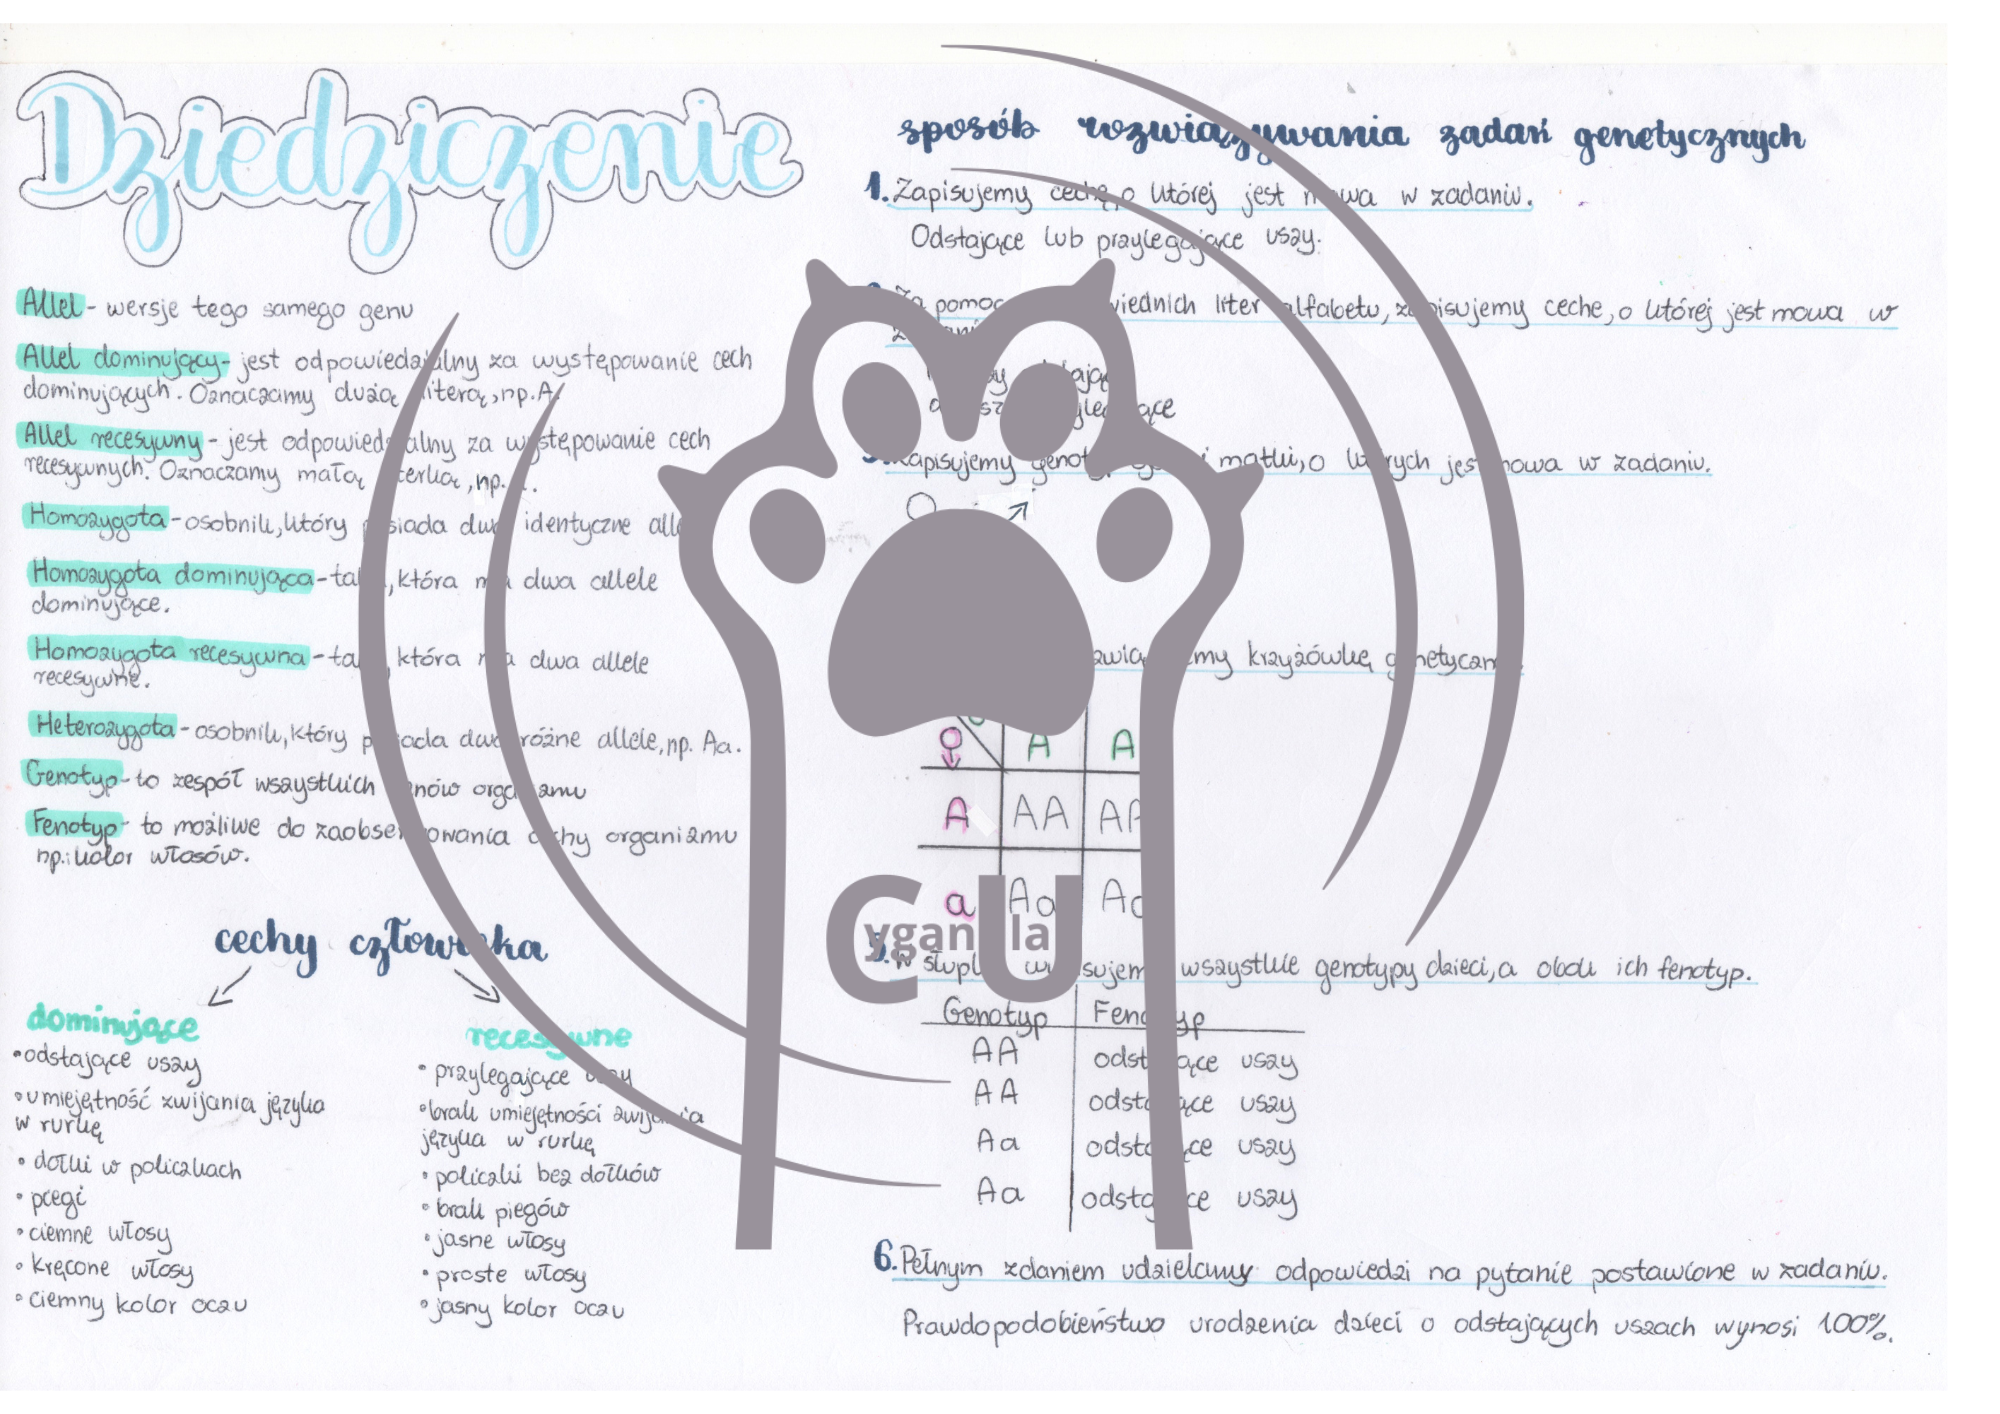 Dziedziczenie
Allel - wersje tego samego genu
Allel dominujący - jest odpowiedzialny za występowanie cech
dominujących. Oznaczamy dużą literą, np. A.
Allel recesywny - jest odpowiedzialny za występowanie cech
recesywnych. Oznaczamy małą literką, np.
Homozygota - osobnik, który posiada dwa identyczne
Homozygota dominująca - taka, która ma dwa allele
dominujące.
Homozygota recesywna - taka, która ma dwa allele
recesywne.
Heterozygota - osobnik, który posiada dwa różne allele, np. Aa.
Genotyp - to zespół wszystkich genów organizmu
Fenotyp - to możliwe do zaobserwowania cechy organizmu
np.: kolor włosów.
cechy człowieka
dominujące
• odstające uszy
• umiejętność zwijania języka
w rurkę
• dołki w policzkach
• piegi
• ciemne włosy
• kręcone włosy
• ciemny kolor oczu
recesywne
• przylegające uszy
• brak umiejętności zwijania
języka w rurkę
• policzki bez dołków
• brak piegów
• jasne włosy
• proste włosy
• jasny kolor oczu
sposób rozwiązywania zadań genetycznych
1. Zapisujemy cechę, o której jest mowa w zadaniu.
Odstające lub przylegające uszy.
Za pomocą odpowiednich liter alfabetu, zapisujemy ceche, o której jest mowa w
3. Zapisujemy matki, o których jest mowa w zadaniu.
krzyżówkę genetyczną.
♀ A A
A AA AA
a Aa Aa
Cyganula
5. W słupku wypisujemy wszystkie genotypy dzieci, a obok ich fenotyp.
Genotyp Fenotyp
AA odstające uszy
AA odstające uszy
Aa odstające uszy
Aa odstające uszy
6. Pełnym zdaniem udzielamy odpowiedzi na pytanie postawione w zadaniu.
Prawdopodobieństwo urodzenia dzieci o odstających uszach wynosi 100%.